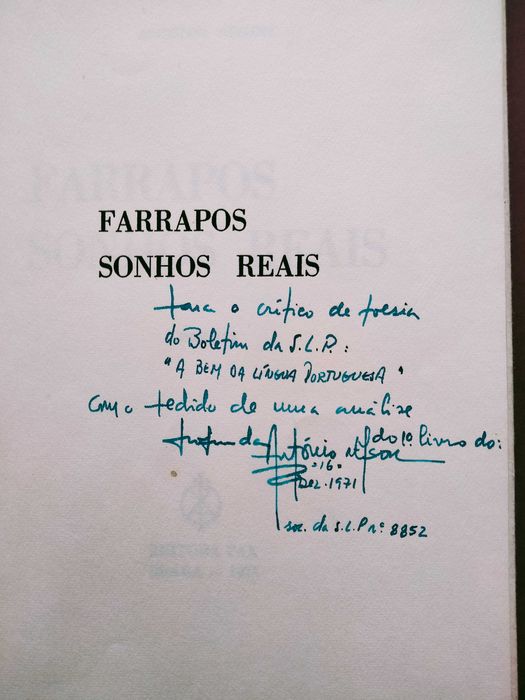 FARRAPOS
SONHOS REAIS
Para o crítico de poesia
do Boletim da S.L.P.:
"A BEM DA LÍNGUA PORTUGUESA"
com o pedido de uma análise
profunda do 1º livro do:
António
16
DEZ. 1971
soc. da S.L.P nº 8852
EDITORA PAX
BRAGA